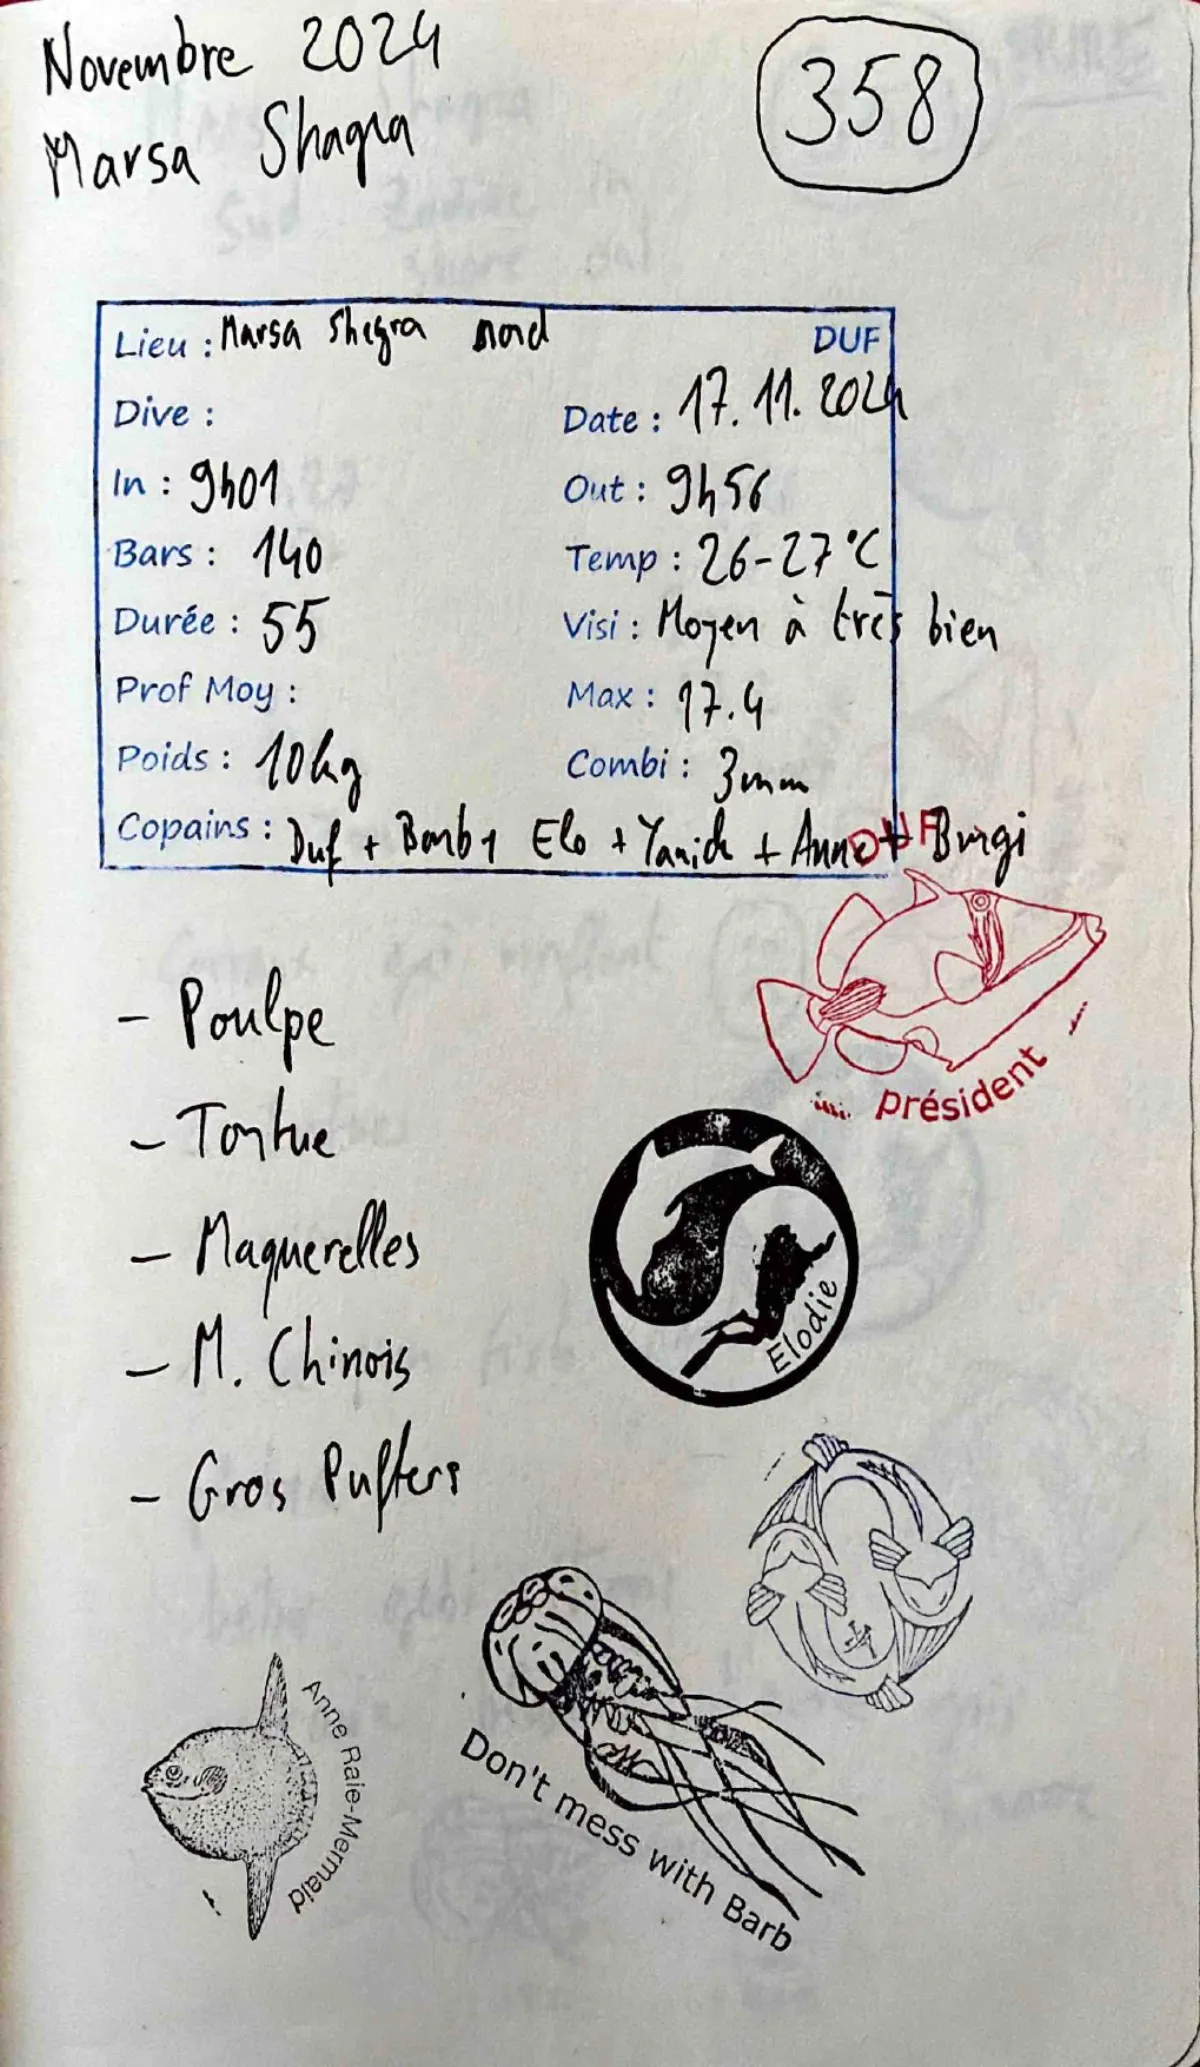 Novembre 2024
358
Marsa Shagra
Lieu : Marsa Shegra nord DUF
Dive : Date : 17.11.2024
In : 9h01 Out : 9h56
Bars : 140 Temp : 26-27°C
Durée : 55 Visi : Moyen à très bien
Prof Moy : Max : 17.4
Poids : 10kg Combi : 3mm
Copains : Duf + Barb + Elo + Yanick + Anne + Burgi
DUF
- Poulpe
président
- Tortue
- Maquerelles
Elodie
- M. Chinois
- Gros Puffers
Anne Raie-Mermaid
Don't mess with Barb